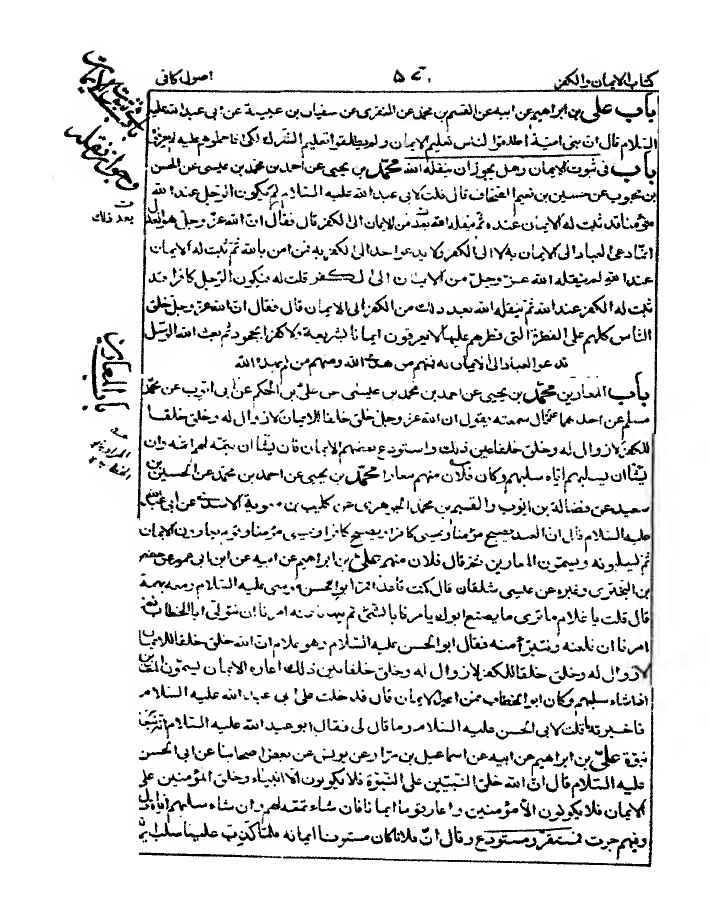 كتاب الايمان والكفر ٥٧٠ اصول كافى
باب على بن ابراهيم عن ابيه عن القسم بن محمد عن المنقرى عن سفيان بن عيينة عن ابى عبد الله عليه
السلام قال ان بنى امية اطلقوا للناس تعليم الايمان ولم يطلقوا تعليم الشرك لكى اذا حملوهم عليه لم يعرفوه
باب فى ثبوت الايمان وهل يجوز ان ينقله الله محمد بن يحيى عن احمد بن محمد بن عيسى عن الحسن
بن محبوب عن حسين بن نعيم الصحاف قال قلت لابى عبد الله عليه السلام لم يكون الرجل عند الله
مؤمنا قد ثبت له الايمان عنده ثم ينقله الله بعد من الايمان الى الكفر قال فقال ان الله عز وجل هو العدل
انما دعى العباد الى الايمان به لا الى الكفر ولا يدعو احدا الى الكفر به فمن امن بالله ثم ثبت له الايمان
عند الله لم ينقله الله عز وجل من الايمان الى الكفر قلت له فيكون الرجل كافرا قد
ثبت له الكفر عند الله ثم ينقله الله بعد ذلك من الكفر الى الايمان قال فقال ان الله عز وجل خلق
الناس كلهم على الفطرة التى فطرهم عليها لا يعرفون ايمانا بشريعة ولا كفرا بجحود ثم بعث الله الرسل
تدعو العباد الى الايمان به فمنهم من هدى الله ومنهم من لم يهده الله
باب المعارين محمد بن يحيى عن احمد بن محمد بن عيسى عن على بن الحكم عن ابى ايوب عن محمد
مسلم عن احدهما قال سمعته يقول ان الله عز وجل خلق خلقا للايمان لا زوال له وخلق خلقا
للكفر لا زوال له وخلق خلقا بين ذلك واستودع بعضهم الايمان فان يشأ ان يتمه لهم اتمه وان
يشأ ان يسلبهم اياه سلبهم وكان فلان منهم معارا محمد بن يحيى عن احمد بن محمد عن الحسين بن
سعيد عن فضالة بن ايوب والقسيم بن محمد الجوهرى عن كليب بن معوية الاسدى عن ابى عبد الله
عليه السلام قال ان العبد يصبح مؤمنا ويمسى كافرا ويصبح كافرا ويمسى مؤمنا وقوم يعارون الايمان
ثم يسلبونه ويسمون المعارين ثم قال فلان منهم على بن ابراهيم عن ابيه عن ابن ابى عمير عن حفص
بن البخترى وغيره عن عيسى شلقان قال كنت قاعدا فمر ابو الحسن موسى عليه السلام ومعه بهمة
قال قلت يا غلام ما ترى ما يصنع ابوك يامرنا بالشئ ثم ينهانا عنه امرنا ان نتولى ابا الخطاب ثم
امرنا ان نلعنه ونتبرأ منه فقال ابو الحسن عليه السلام وهو غلام ان الله خلق خلقا للايمان
لا زوال له وخلق خلقا للكفر لا زوال له وخلق خلقا بين ذلك اعاره الايمان يسمون المعارين
اذا شاء سلبهم وكان ابو الخطاب ممن اعير الايمان قال فدخلت على ابى عبد الله عليه السلام
فاخبرته ما قلت لابى الحسن عليه السلام وما قال لى فقال ابو عبد الله عليه السلام انه نبعة
نبوة على بن ابراهيم عن ابيه عن اسماعيل بن مرار عن يونس عن بعض اصحابنا عن ابى الحسن
عليه السلام قال ان الله خلق النبيين على النبوة فلا يكونون الا انبياء وخلق المؤمنين على
الايمان فلا يكونون الا مؤمنين واعار قوما ايمانا فان شاء تممه لهم وان شاء سلبهم اياه قال
وفيهم جرت فمستقر ومستودع وقال ان فلانا كان مستودعا ايمانه فلما كذب علينا سلب
باب ثبوت الايمان
وهل يجوز ان ينقله
بعد ذلك
باب المعارين